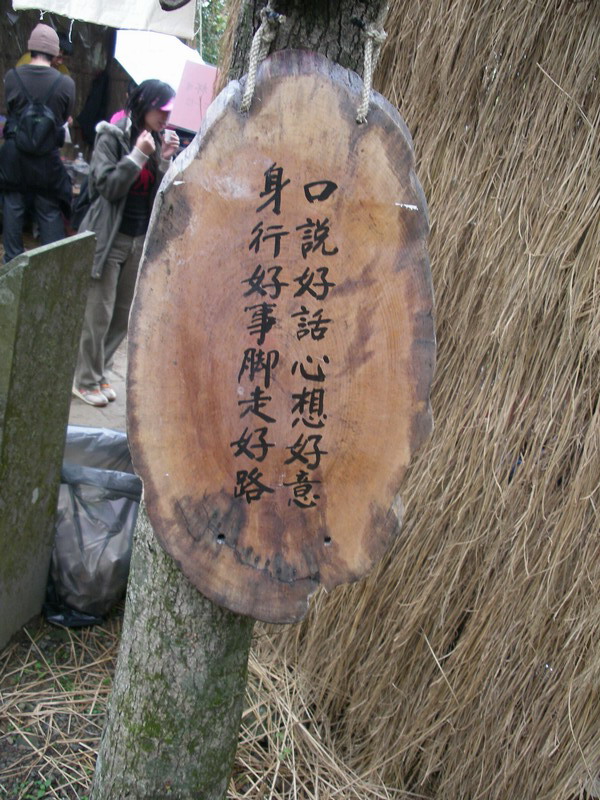 口說好話心想好意
身行好事脚走好路